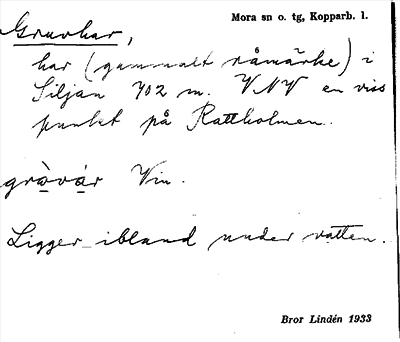 Mora sn o. tg, Kopparb. l.
Gruvhar,
har (gammalt råmärke) i
Siljan 702 m. VNV en viss
punkt på Rattholmen.
gròvár Vin.
Ligger ibland under vatten.
Bror Lindén 1933